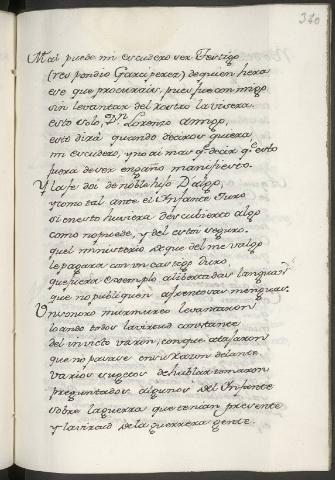 340
Mal puede mi escudero ser Testigo
(respondio Garci perez) de quien hera
ese que procurais, pues fue con migo
sin levantar del rostro la visera.
esto solo, Dn Lorenzo amigo,
esto dirá quando deciros quiera
mi escudero, y no ai mas qe decir qe esto
fuera de ser engaño manifiesto.
Y la fe doi de noble hijo Dalgo,
y como tal ante el Infante Juro
si en esto huviera descubierto algo
como no puede, y del estoi seguro.
quel ministerio de que del me valgo
le pagara con un castigo duro,
que fuera exemplo a libertadas lenguas
que no publiquen afrentosas menguas.
Un sonoro murmureo levantaron
loando todos la virtud constante
del invicto varon, con que atajaron
que no pasase en su razon delante.
varios sugetos de hablar tomaron
preguntados algunos del Infante
sobre la guerra que tenian presente
y la virtud de la guerrera gente.